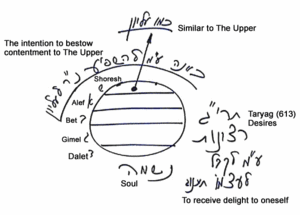 כמו עליון
Similar to The Upper
The intention to bestow
contentment to The Upper
כוונה ע"מ להשפיע נ"ר לעליון
Shoresh
Alef א
Bet ב
Gimel ג
Dalet ד
תרי"ג
Taryag (613)
Desires
רצונות
ע"מ לקבל
לעצמו תענוג
נשמה
Soul
To receive delight to oneself